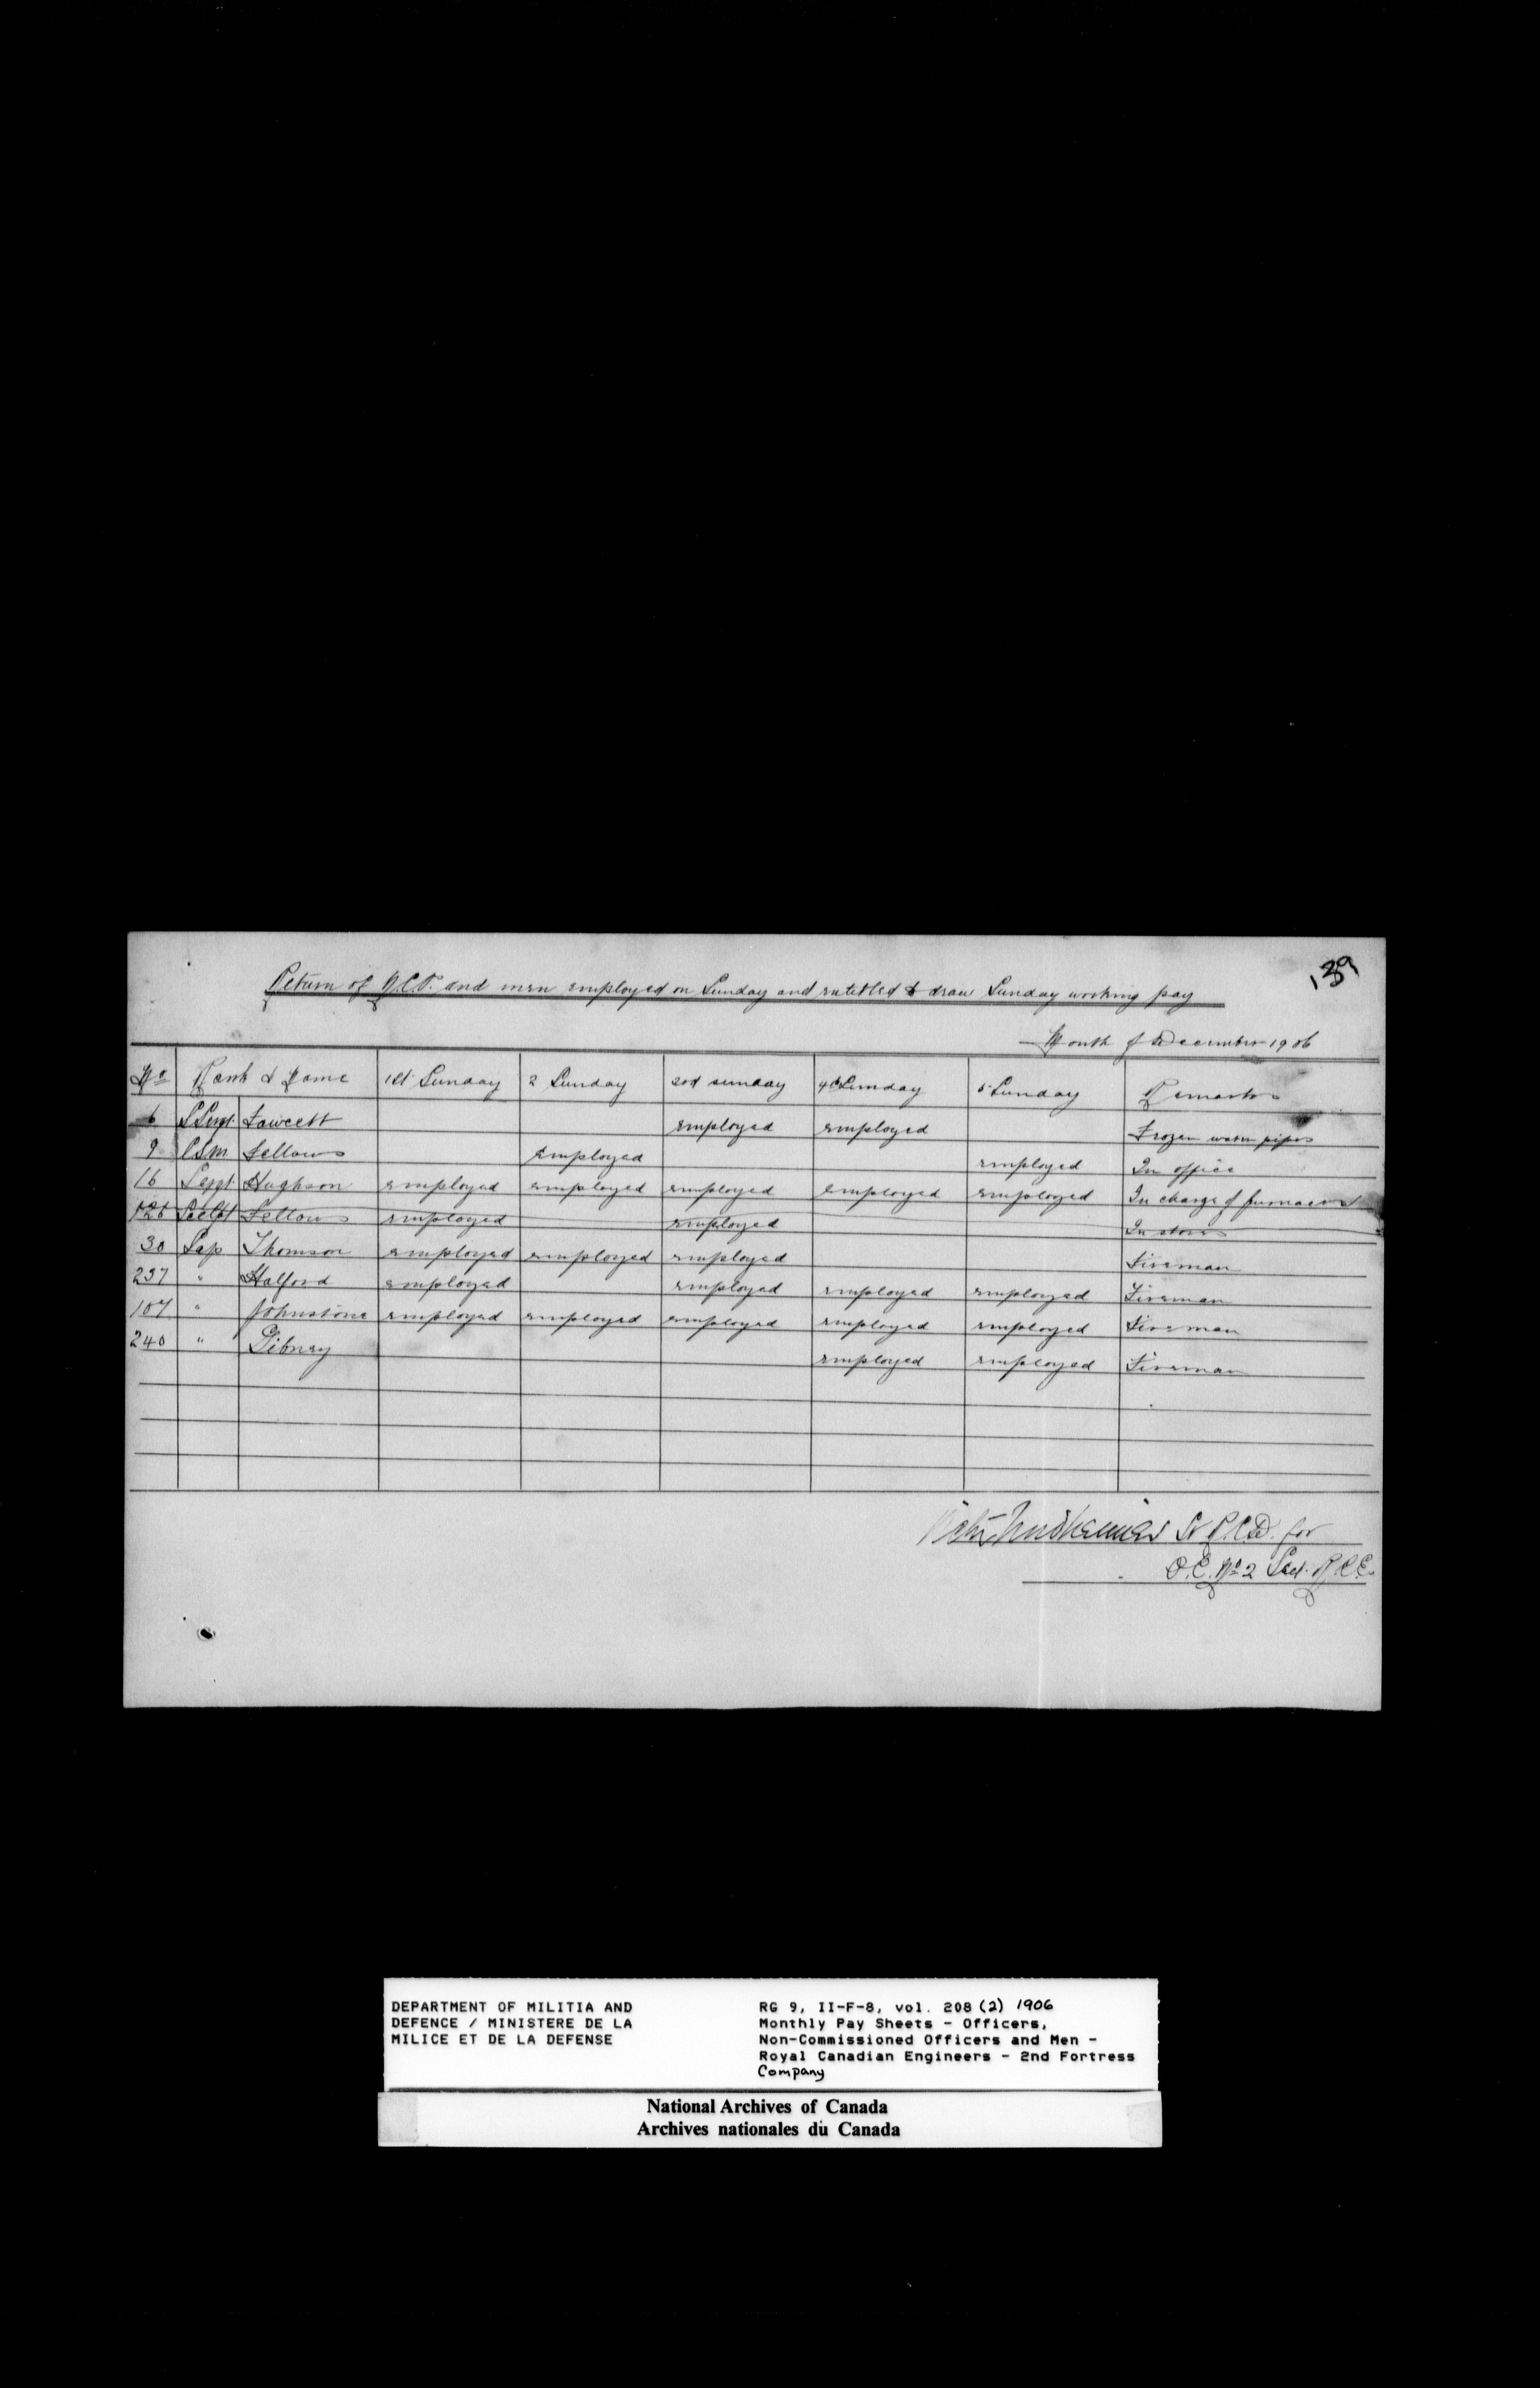 139
Return of N.C.O. and men employed on Sunday and entitled to draw Sunday working pay
Month of December 1906
No Rank & Name 1st Sunday 2 Sunday 3rd sunday 4th Sunday 5 Sunday Remarks
6 S Sergt. Fawcett employed employed Frozen water pipes
9 CSM Fellows employed employed In office
16 Sergt. Hughson employed employed employed employed employed In charge of furnaces
Fellows employed employed In stores
30 Sap Thomson employed employed employed Fireman
237 " Halford employed employed employed employed Fireman
107 " Johnstone employed employed employed employed employed Fireman
240 " Gibney employed employed Fireman
Lt R.C.D. for
O.C. No 2 Sect. R.C.E.
DEPARTMENT OF MILITIA AND
DEFENCE / MINISTERE DE LA
MILICE ET DE LA DEFENSE
RG 9, II-F-8, vol. 208 (2) 1906
Monthly Pay Sheets - Officers,
Non-Commissioned Officers and Men -
Royal Canadian Engineers - 2nd Fortress
Company
National Archives of Canada
Archives nationales du Canada